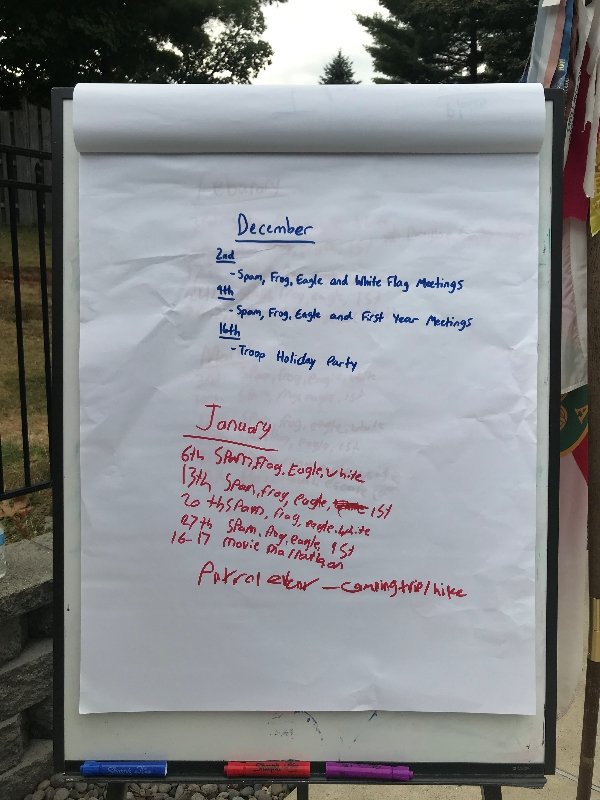 December
2nd
- Spam, Frog, Eagle and White Flag Meetings
9th
- Spam, Frog, Eagle and First Year Meetings
16th
- Troop Holiday Party
January
6th Spam, frog, Eagle, White
13th Spam, frog, eagle, 1st
20th Spam, frog, eagle, White
27th Spam, frog, eagle, 1st
16-17 movie marathon
Patrol event - camping trip/hike